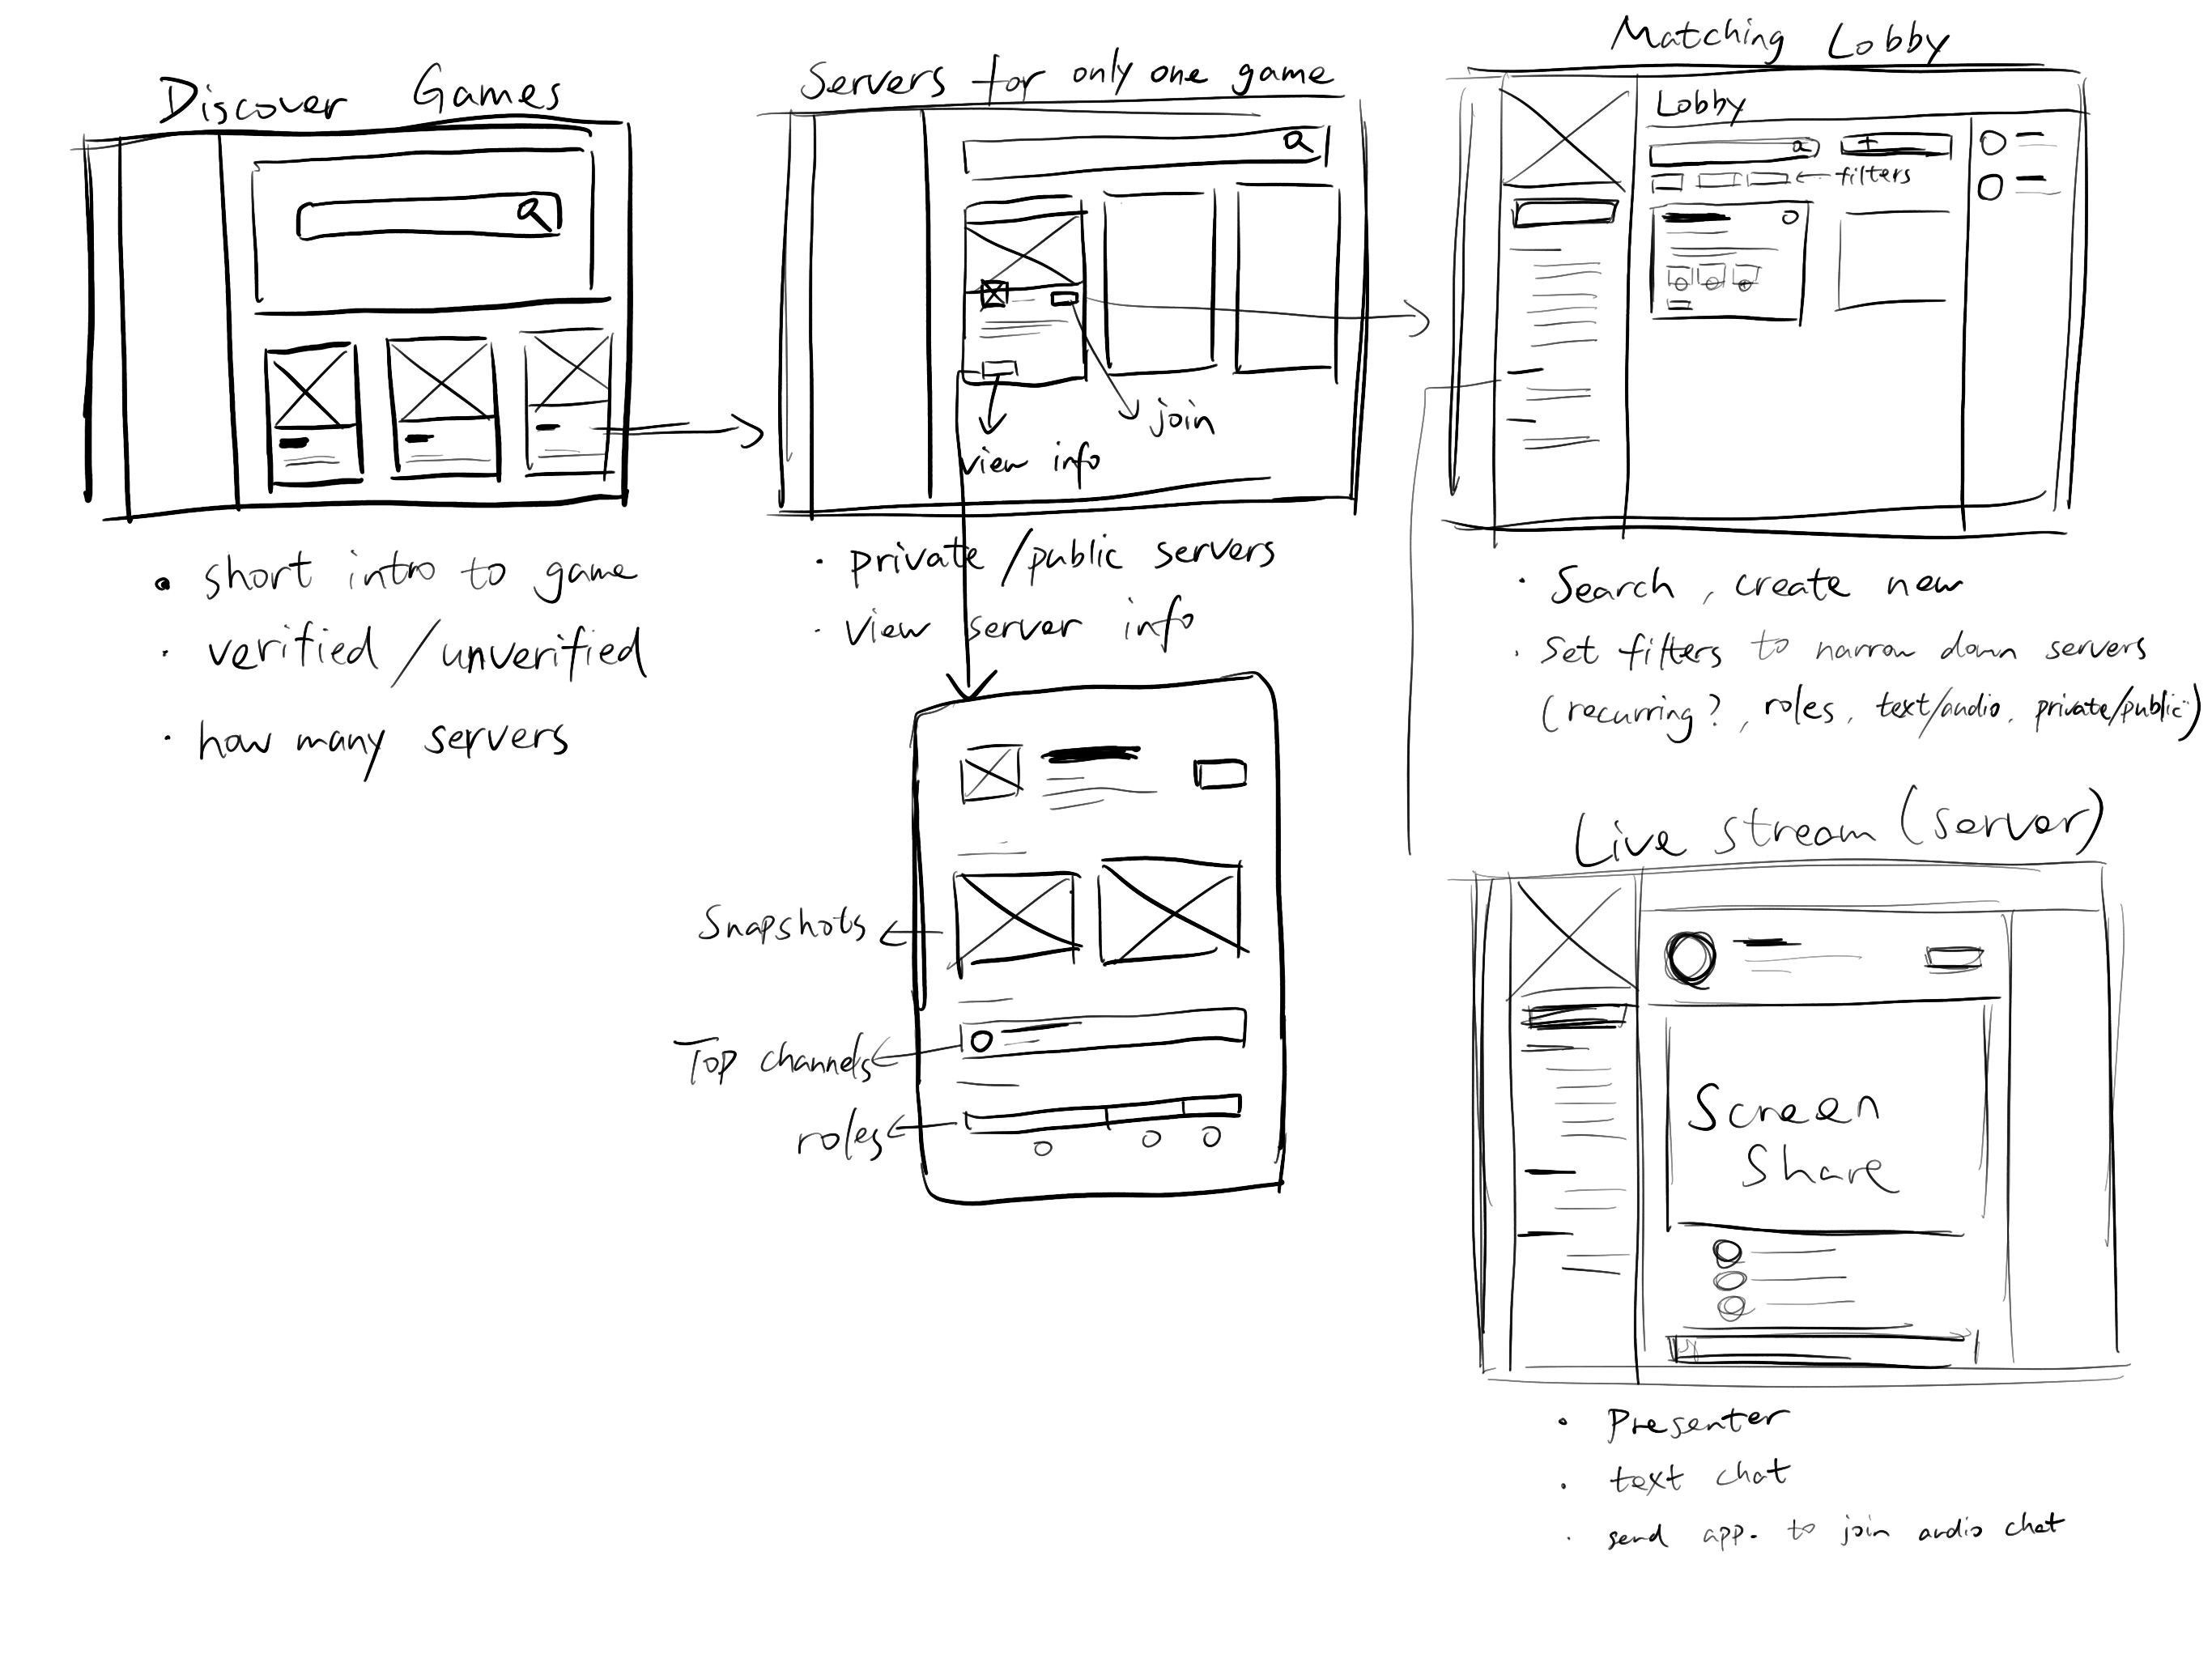 Discover Games
• short intro to game
· verified/unverified
· how many servers
Servers for only one game
join
view info
· private/public servers
· view server info
Snapshots
Top channels
roles
Matching Lobby
Lobby
+
filters
· Search, create new
· Set filters to narrow down servers
(recurring?, roles, text/audio, private/public)
Live stream (server)
Screen
Share
· Presenter
· text chat
· send app. to join audio chat